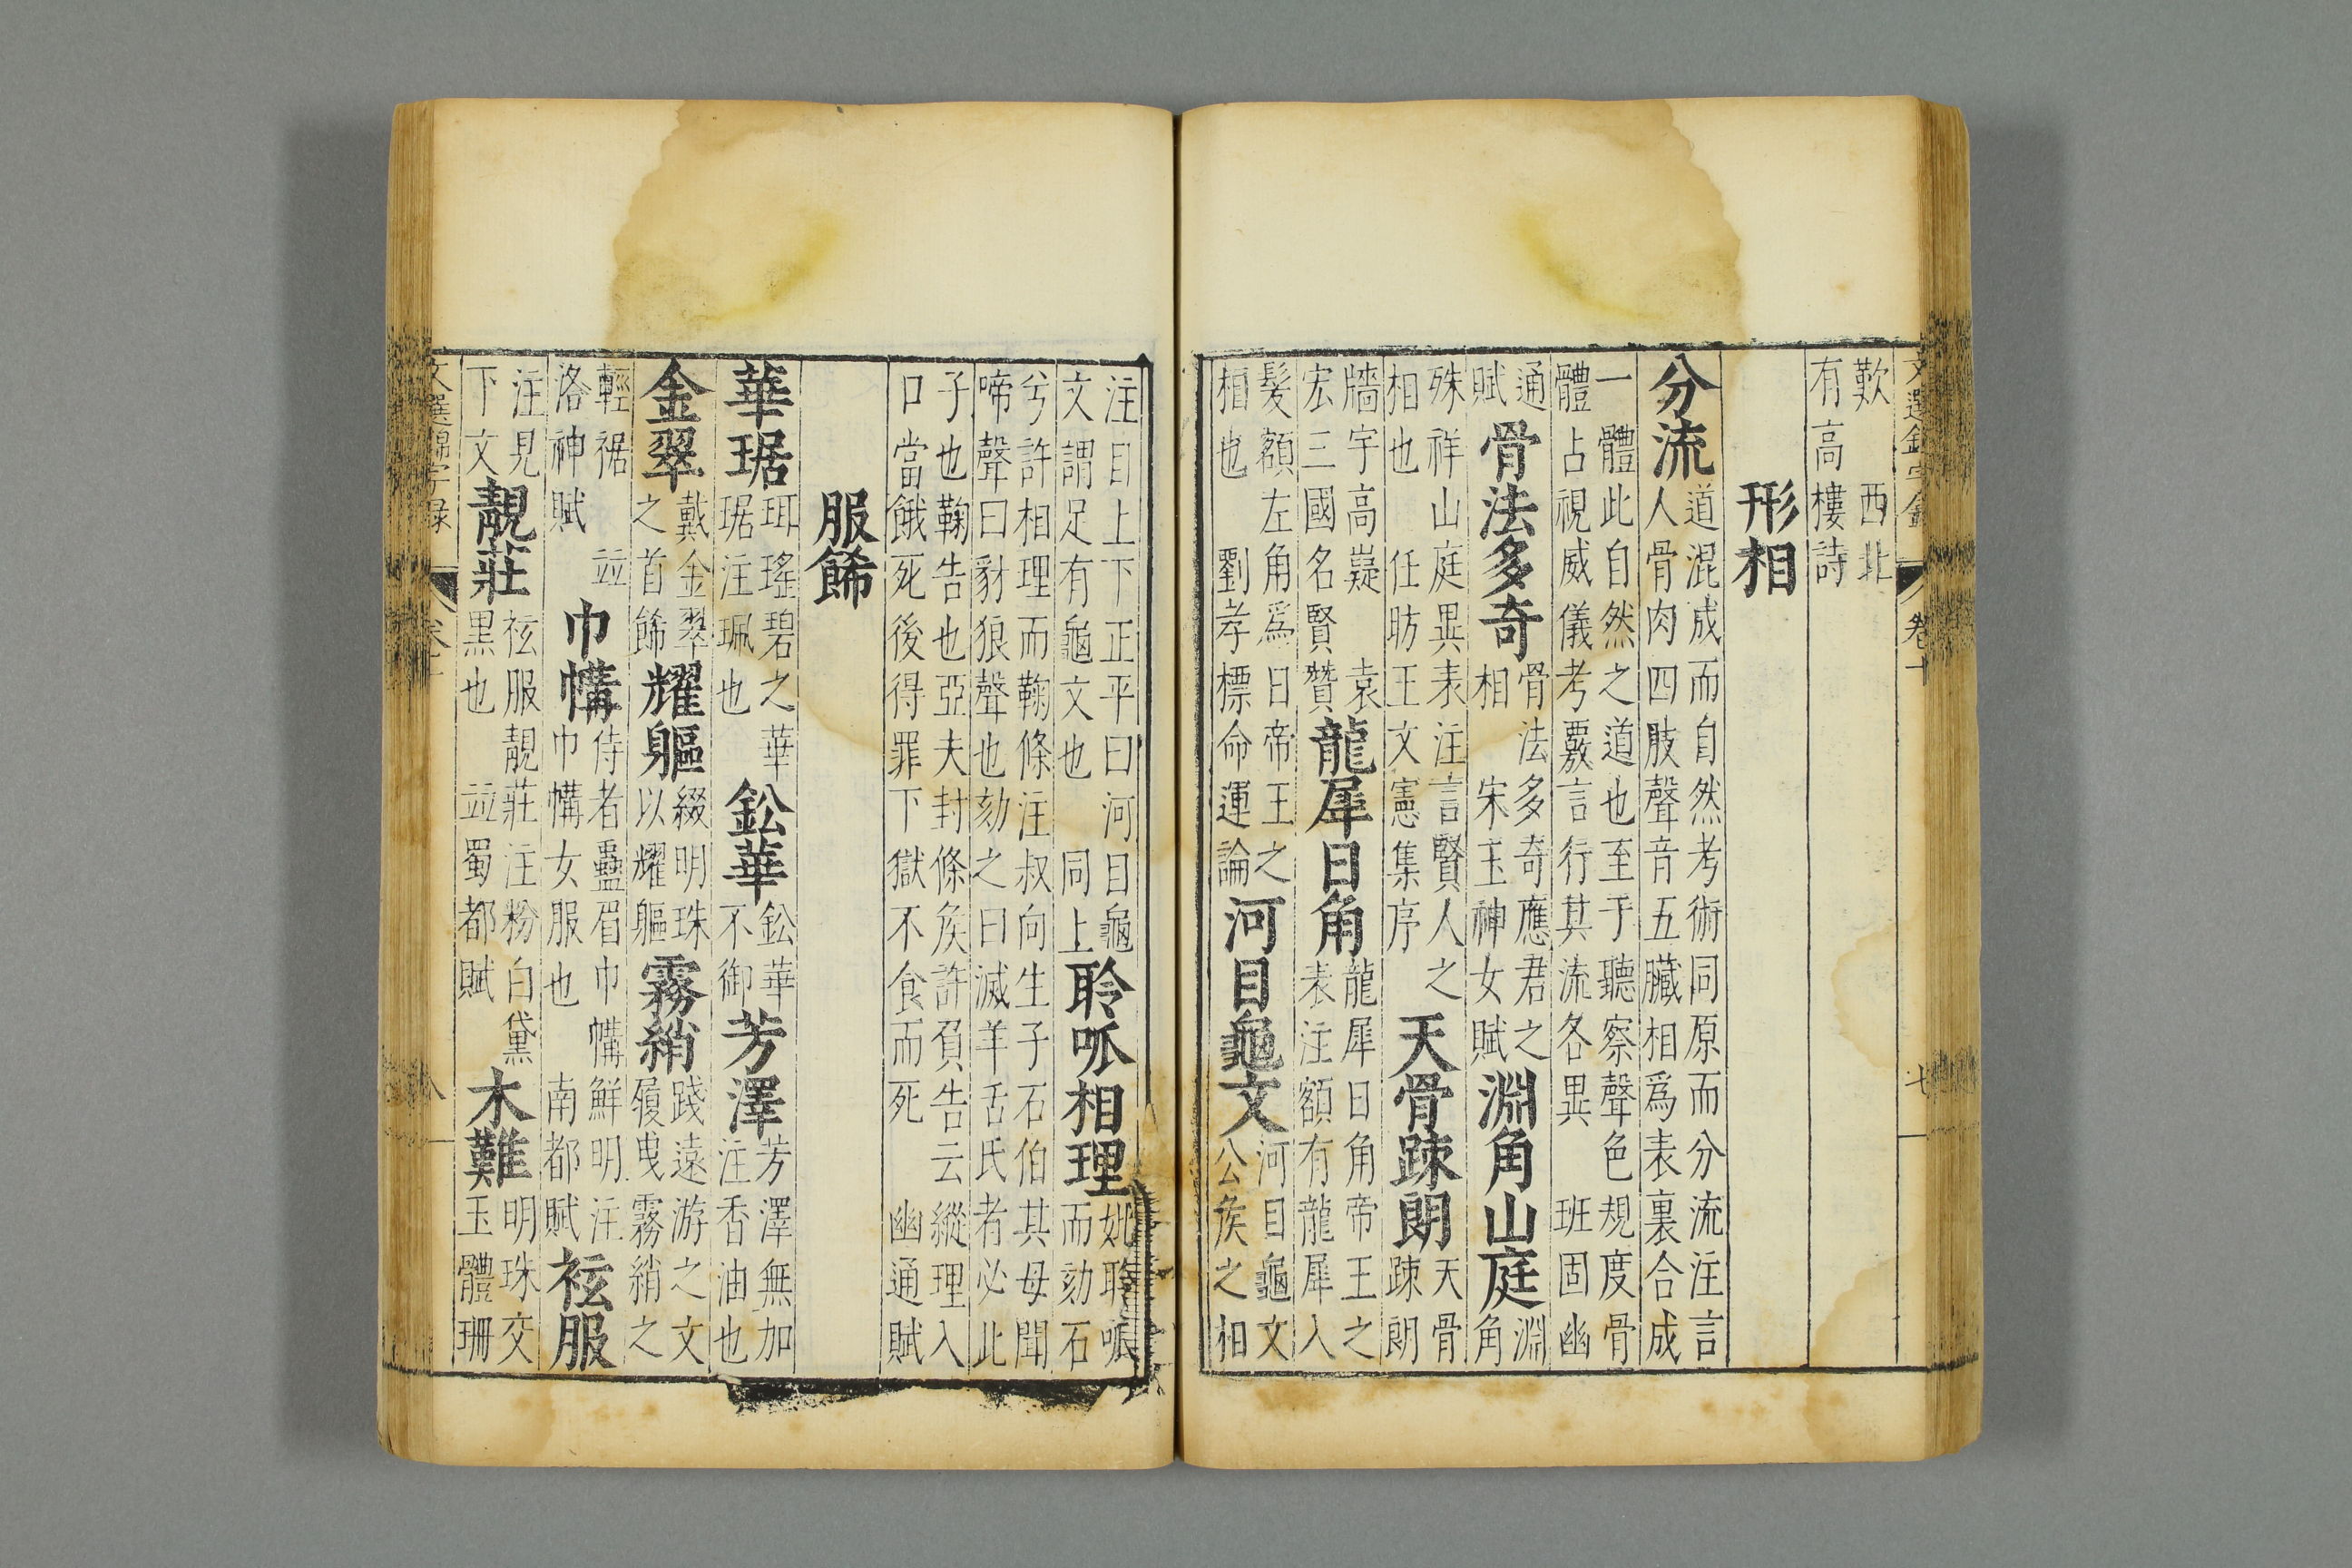 文選錦字錄 卷十 七
歎 西北
有高樓詩
形相
分流
道混成而自然考術同原而分流注言
人骨肉四肢聲音五臟相爲表裏合成
一體此自然之道也至于聽察聲色規度骨
體占視威儀考覈言行其流各異 班固幽
通
賦
骨法多奇
骨法多奇應君之
相 宋玉神女賦
淵角山庭
淵
角
殊祥山庭異表注言賢人之
相也 任昉王文憲集序
天骨疎朗
天骨
疎朗
牆宇高嶷 袁
宏三國名賢贊
龍犀日角
龍犀日角帝王之
表注額有龍犀入
髮額左角爲日帝王之
相也 劉孝標命運論
河目龜文
河目龜文
公矦之相
注目上下正平曰河目龜
文謂足有龜文也 同上
聆呱相理
妣聆呱
而劾石
兮許相理而鞫條注叔向生子石伯其母聞
啼聲曰豺狼聲也劾之曰滅羊舌氏者必此
子也鞫告也亞夫封條矦許負告云縱理入
口當餓死後得罪下獄不食而死 幽通賦
服餙
華琚
珥瑤碧之華
琚注珮也
鈆華
鈆華
不御
芳澤
芳澤無加
注香油也
金翠
戴金翠
之首餙
耀軀
綴明珠
以耀軀
霧綃
踐遠游之文
履曳霧綃之
輕裾 並
洛神賦
巾㡚
侍者蠱眉巾㡚鮮明注
巾㡚女服也 南都賦
袨服
注見
下文
靚莊
袨服靚莊注粉白黛
黑也 並蜀都賦
木難
明珠交
玉體珊
文選錦字錄 卷十 八